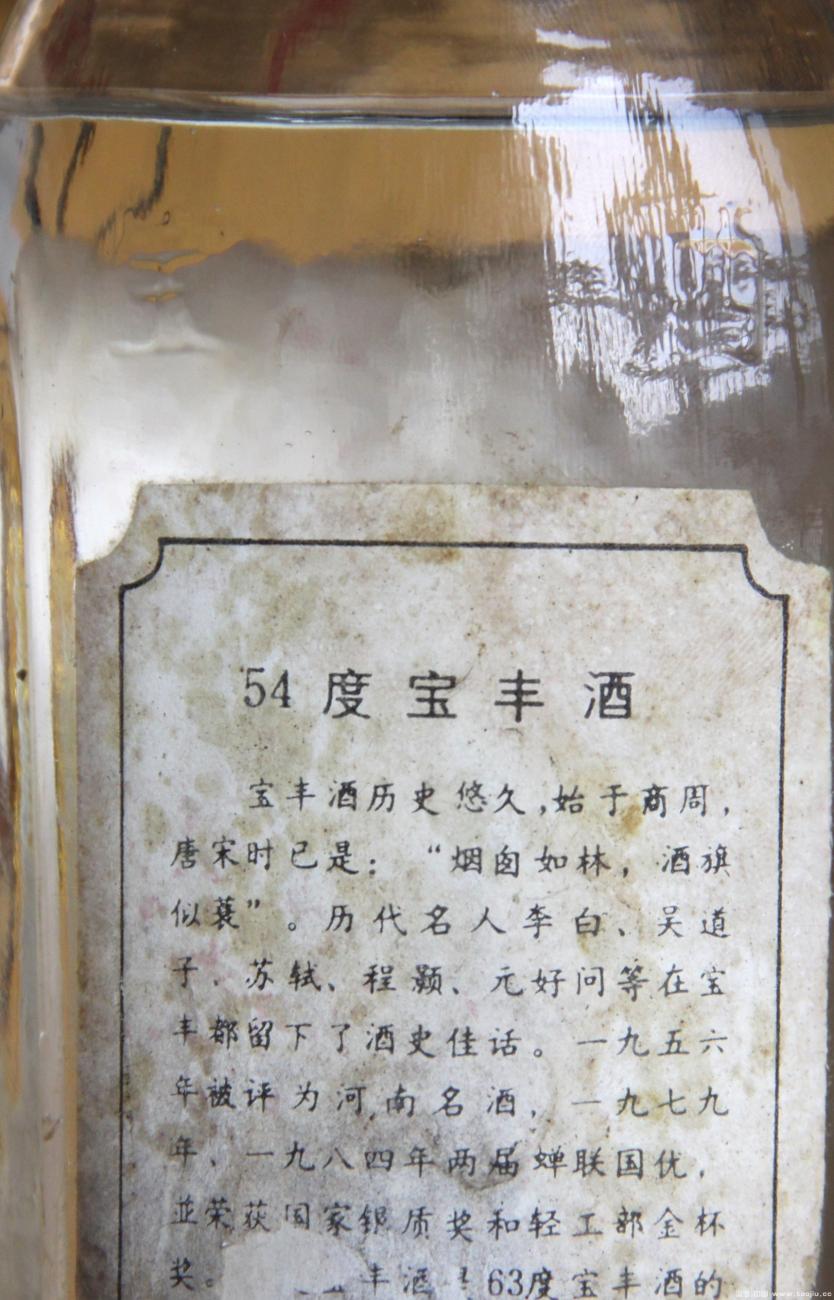 54度宝丰酒
宝丰酒历史悠久,始于商周,
唐宋时已是:“烟囱如林,酒旗
似蓑”。历代名人李白、吴道
子、苏轼、程颢、元好问等在宝
丰都留下了酒史佳话。一九五六
年被评为河南名酒,一九七九
年、一九八四年两届蝉联国优,
並荣获国家银质奖和轻工部金杯
奖。丰酒63度宝丰酒的